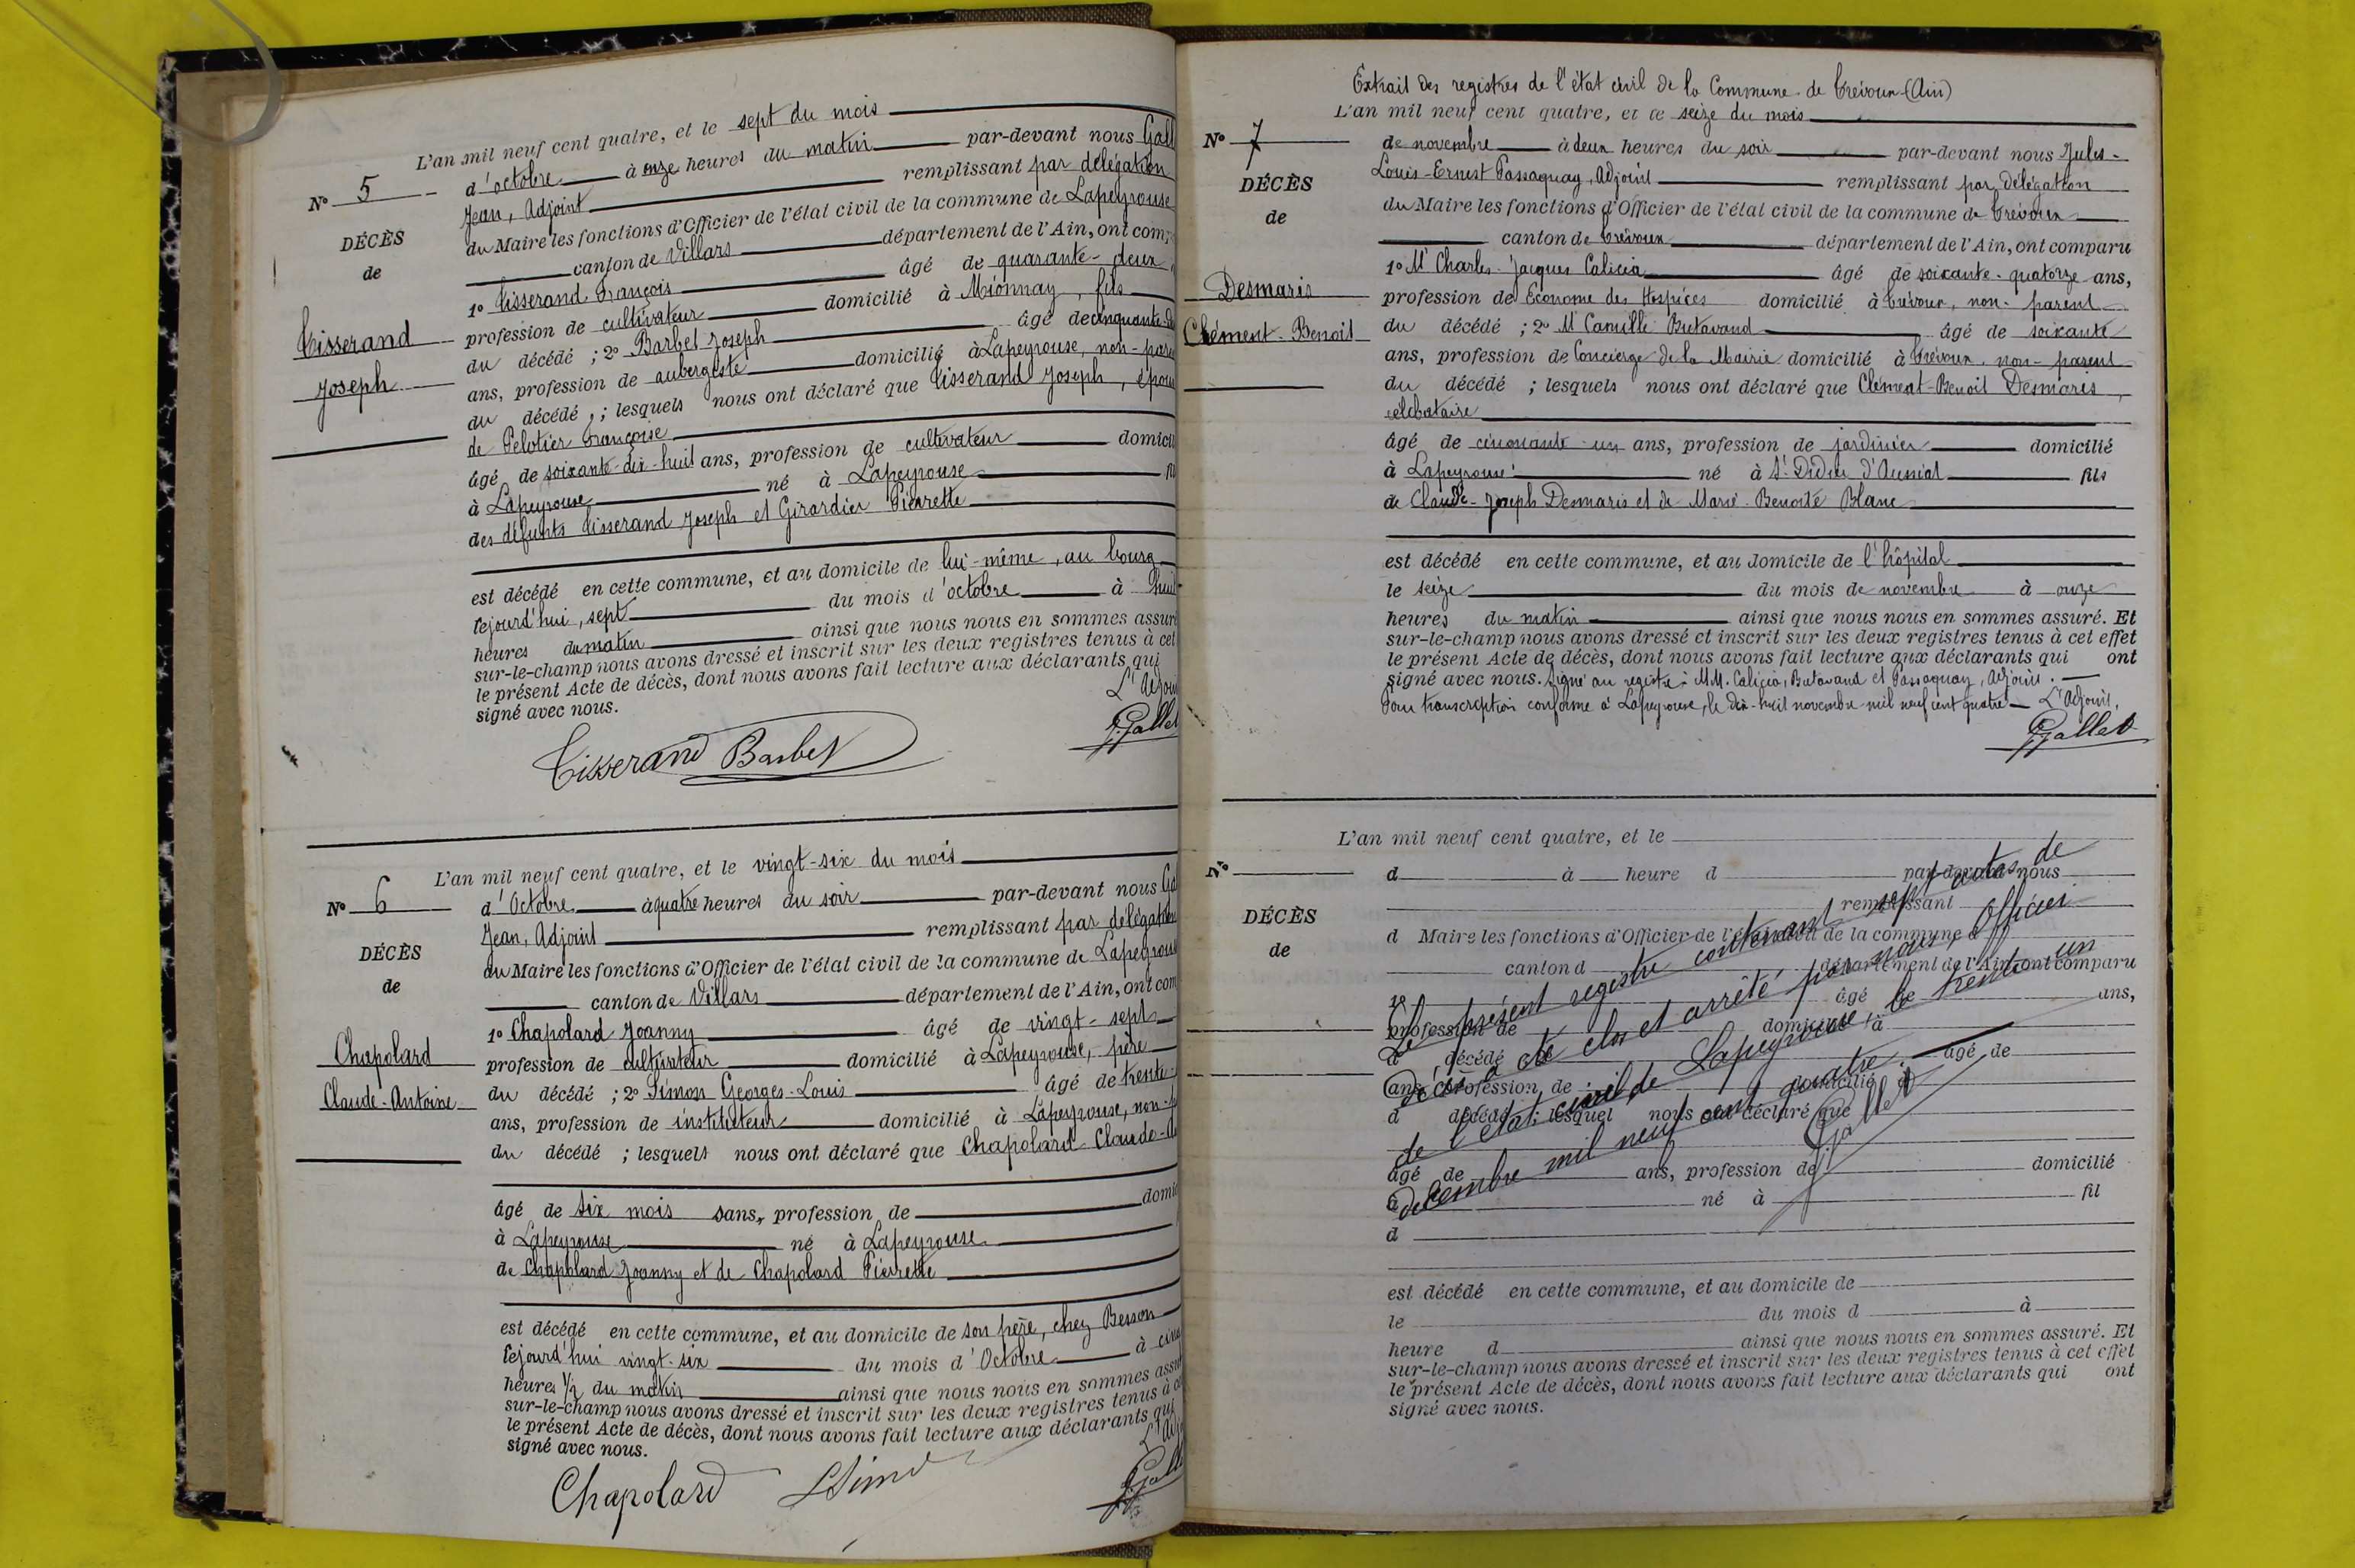 L'an mil neuf cent quatre, et le sept du mois
d'octobre à onze heures du matin par-devant nous Gall
Nº 5
Jean, Adjoint remplissant par délégation
DÉCÈS
du Maire les fonctions d'Officier de l'état civil de la commune de Lapeyrouse
de
canton de Villars département de l'Ain, ont comp
1º Tisserand François âgé de quarante-deux
Tisserand
profession de cultivateur domicilié à Mionnay, fils
du décédé ; 2º Barbet Joseph âgé de cinquante-
Joseph
ans, profession de aubergiste domicilié à Lapeyrouse, non-pare
du décédé ; lesquels nous ont déclaré que Tisserand Joseph, épou
de Pelotier Françoise
âgé de soixante-dix-huit ans, profession de cultivateur domicil
à Lapeyrouse né à Lapeyrouse
des défunts Tisserand Joseph et Girardier Pierrette
est décédé en cette commune, et au domicile de lui-même, au bourg
cejourd'hui, sept du mois d'octobre à huit
heures du matin ainsi que nous nous en sommes assuré
sur-le-champ nous avons dressé et inscrit sur les deux registres tenus à cet
le présent Acte de décès, dont nous avons fait lecture aux déclarants qui
signé avec nous. L'Adjoin
Tisserand Barbet J. Gallet
L'an mil neuf cent quatre, et le vingt-six du mois
Nº 6
d'Octobre à quatre heures du soir par-devant nous Ga
Jean, Adjoint remplissant par délégation
DÉCÈS
du Maire les fonctions d'Officier de l'état civil de la commune de Lapeyrous
de
canton de Villars département de l'Ain, ont com
1º Chapolard Joanny âgé de vingt-sept
Chapolard
profession de cultivateur domicilié à Lapeyrouse, père
Claude-Antoine
du décédé ; 2º Simon Georges-Louis âgé de trente-
ans, profession de instituteur domicilié à Lapeyrouse, non-p
du décédé ; lesquels nous ont déclaré que Chapolard Claude-A
âgé de six mois sans, profession de domic
à Lapeyrouse né à Lapeyrouse
de Chapolard Joanny et de Chapolard Pierrette
est décédé en cette commune, et au domicile de son père, chez Besson
cejourd'hui vingt-six du mois d'Octobre à cinq
heures 1/2 du matin ainsi que nous nous en sommes assur
sur-le-champ nous avons dressé et inscrit sur les deux registres tenus à ce
le présent Acte de décès, dont nous avons fait lecture aux déclarants qui
signé avec nous. L'Adj
Chapolard LSimon J. Gall
Extrait des registres de l'état civil de la Commune de Trévoux (Ain)
L'an mil neuf cent quatre, et le seize du mois
Nº 7
de novembre à deux heures du soir par-devant nous Jules-
Louis-Ernest Passaquay, Adjoint remplissant par délégation
DÉCÈS
du Maire les fonctions d'Officier de l'état civil de la commune de Trévoux
de
canton de Trévoux département de l'Ain, ont comparu
1º Mr Charles-Jacques Calicia âgé de soixante-quatorze ans,
Desmaris
profession de Econome des Hospices domicilié à Trévoux, non-parent
Clément-Benoit
du décédé ; 2º Mr Camille Butavand âgé de soixante
ans, profession de Concierge de la Mairie domicilié à Trévoux, non-parent
du décédé ; lesquels nous ont déclaré que Clément-Benoit Desmaris,
célibataire
âgé de cinquante-un ans, profession de jardinier domicilié
à Lapeyrouse né à St Didier d'Aussiat fils
de Claude-Joseph Desmaris et de Marie-Benoite Blanc
est décédé en cette commune, et au domicile de l'hôpital
le seize du mois de novembre à onze
heures du matin ainsi que nous nous en sommes assuré. Et
sur-le-champ nous avons dressé et inscrit sur les deux registres tenus à cet effet
le présent Acte de décès, dont nous avons fait lecture aux déclarants qui ont
signé avec nous. Signé au registre : MM. Calicia, Butavand et Passaquay, Adjoint.
Pour transcription conforme à Lapeyrouse, le dix-huit novembre mil neuf cent quatre L'Adjoint,
J. Gallet
L'an mil neuf cent quatre, et le
Nº
d à heure d par-devant nous
remplissant
DÉCÈS
d Maire les fonctions d'Officier de l'état civil de la commune d
de
canton d département de l'Ain, ont comparu
1º âgé de ans,
profession de domicilié à
d décédé ; 2º âgé de
ans, profession de domicilié à
d décédé ; lesquel nous ont déclaré que
âgé de ans, profession de domicilié
à né à fil
d
Le présent registre contenant sept actes de
décès a été clos et arrêté par nous, Officier
de l'état civil de Lapeyrouse, le trente un
décembre mil neuf cent quatre.
J. Gallet
est décédé en cette commune, et au domicile de
le du mois d à
heure d ainsi que nous nous en sommes assuré. Et
sur-le-champ nous avons dressé et inscrit sur les deux registres tenus à cet effet
le présent Acte de décès, dont nous avons fait lecture aux déclarants qui ont
signé avec nous.